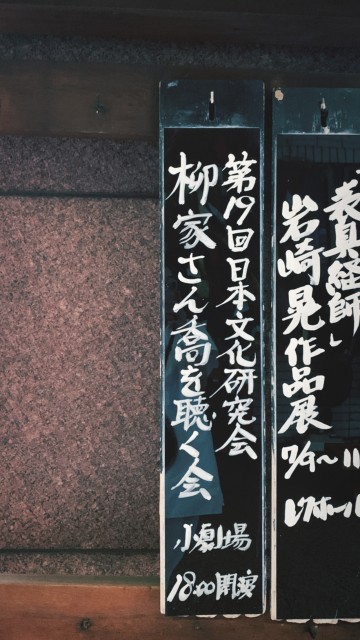 表具経師」
岩崎晃作品展
7/9〜11
第19回日本文化研究会
柳家さん喬を聴く会
小劇場
18:00開宴